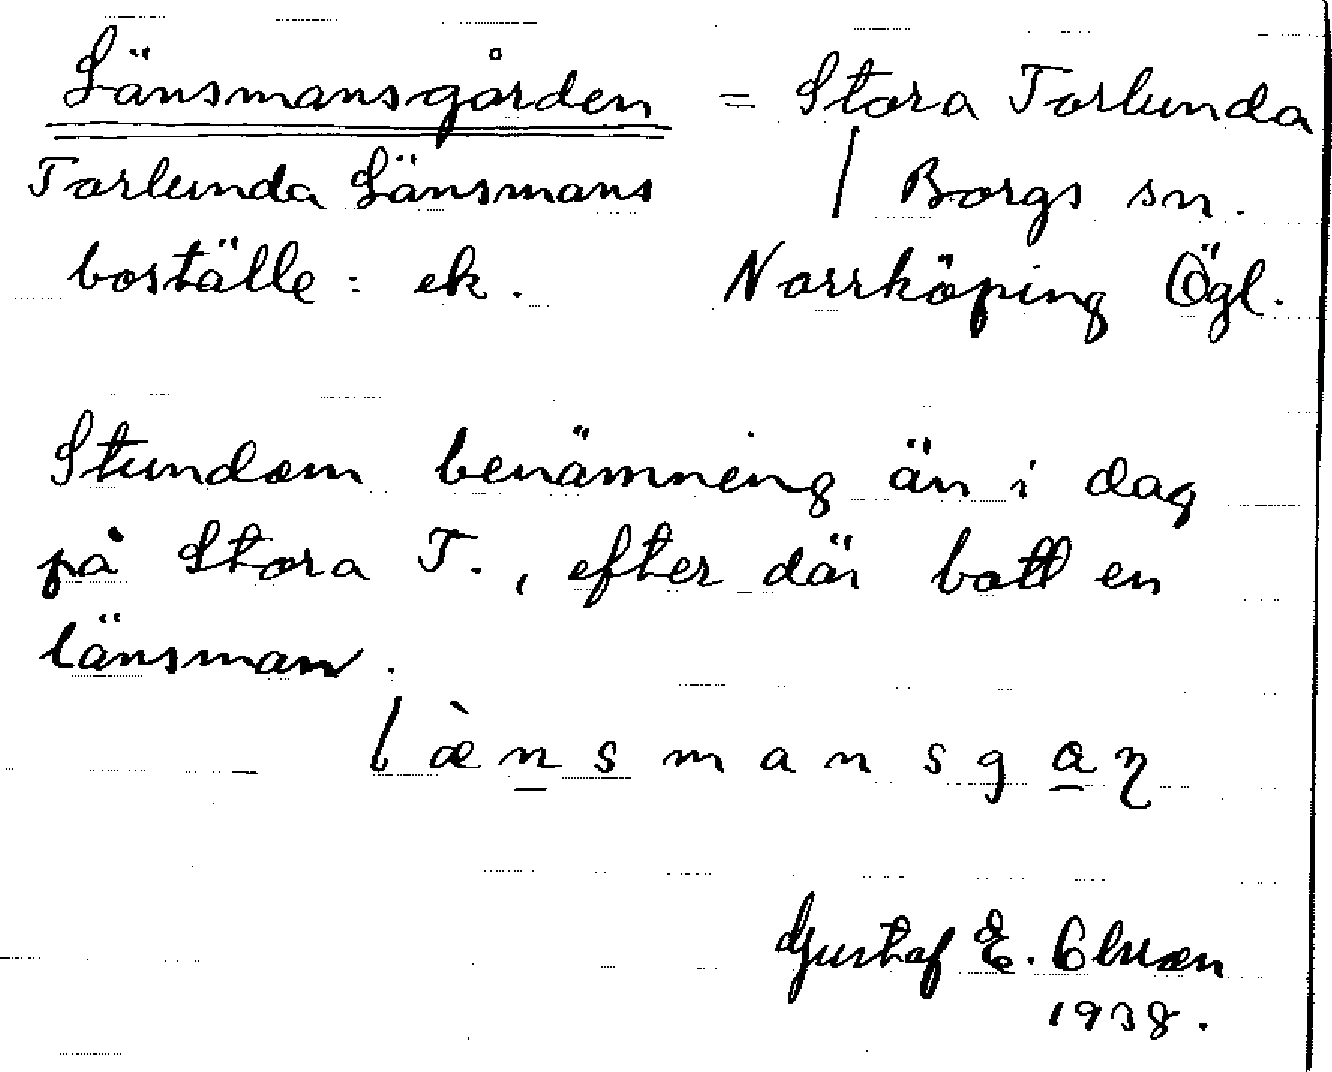 Länsmansgården = Stora Torlunda
Torlunda Länsmans | Borgs sn.
boställe : ek. Norrköping Ögl.
Stundom benämning än i dag
på Stora T., efter där bott en
länsman.
l æ̀ n s m a n s g a ɳ
Gustaf E.
1938.